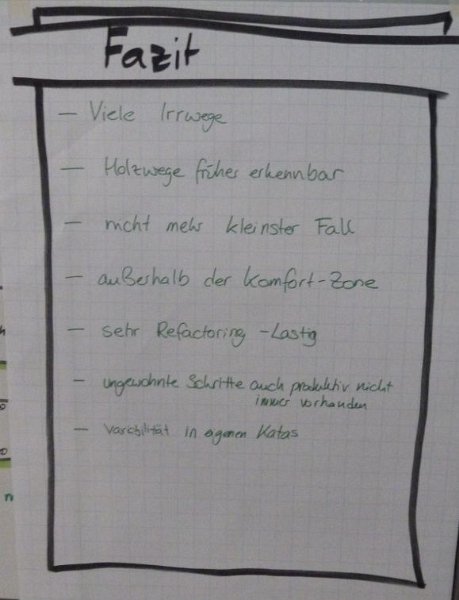 Fazit
- Viele Irrwege
- Holzwege früher erkennbar
- nicht mehr kleinster Fall
- außerhalb der Komfort-Zone
- sehr Refactoring-Lastig
- ungewohnte Schritte auch produktiv nicht
immer vorhanden
- Varibilität in eigenen Katas
n